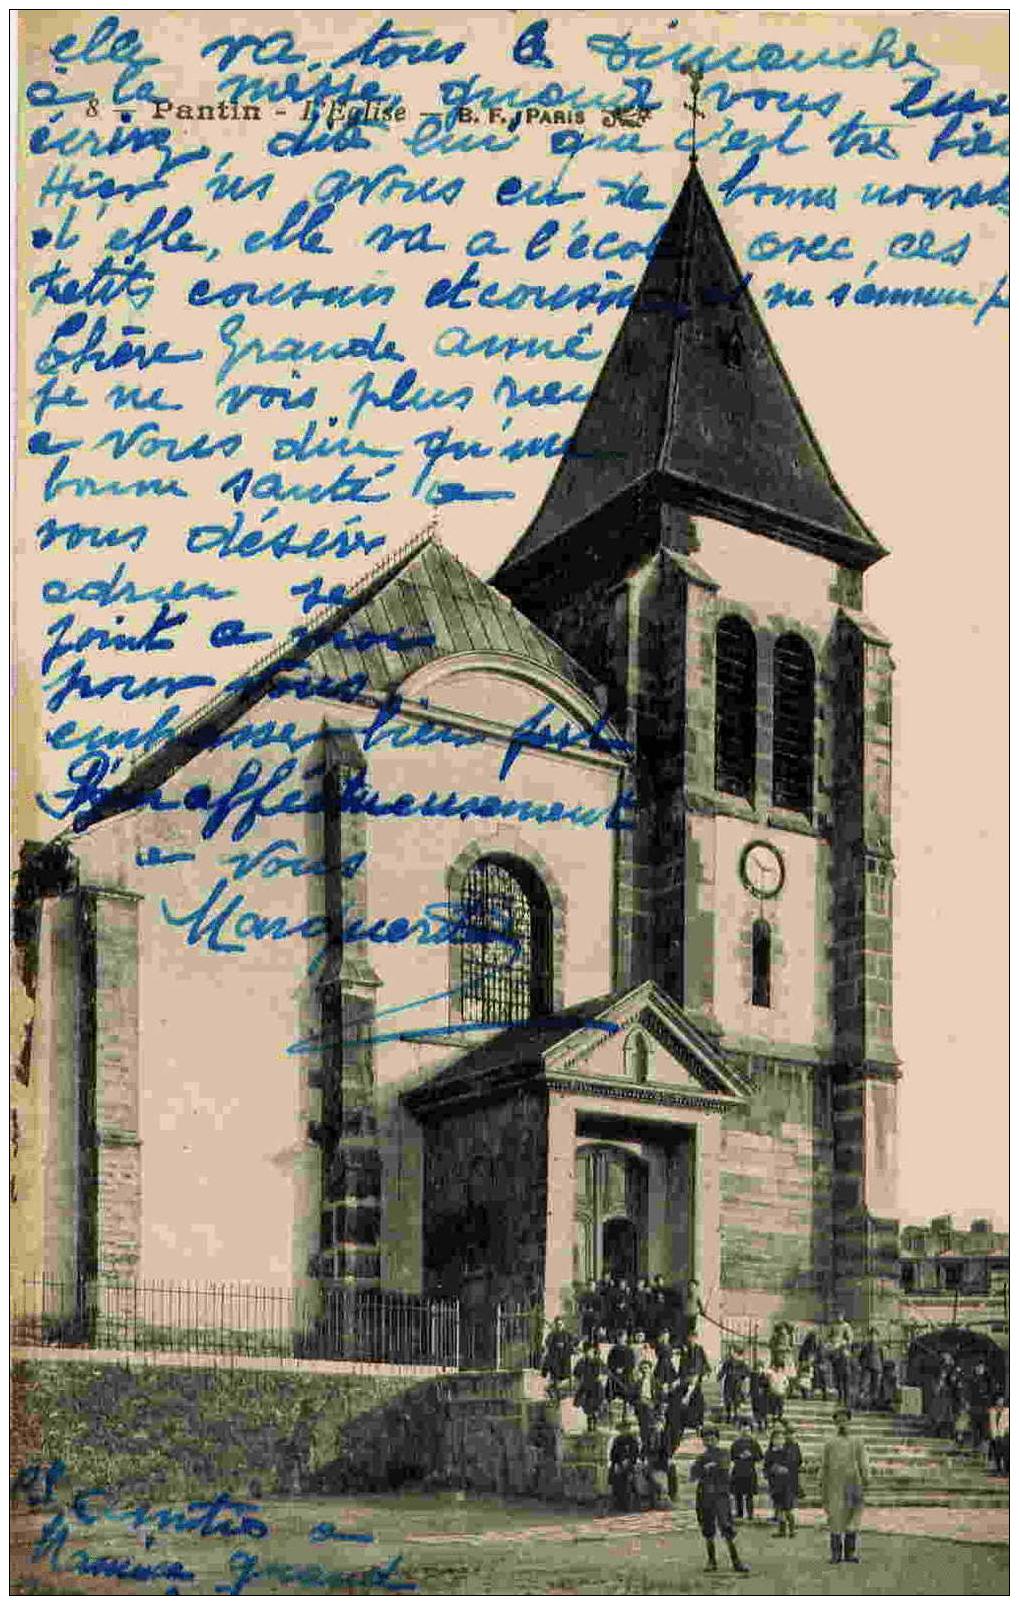 elle va tous le Dimanche
à la messe, quand vous lui
8 - Pantin - L'Eglise - B. F., PARIS
écrirez, dite lui que c'est très bien
Hier ns avons eu de bonnes nouvelles
d'elle, elle va a l'école avec ces
petits cousins et cousines et ne s'ennuie pas
Chère Grande
je ne vois plus rien
a vous dire qu'une
bonne santé a
vous désirer
adrien se
joint a moi
pour vous
embrasser bien fort
Bien afféctueusement
a vous
Marguerite
a